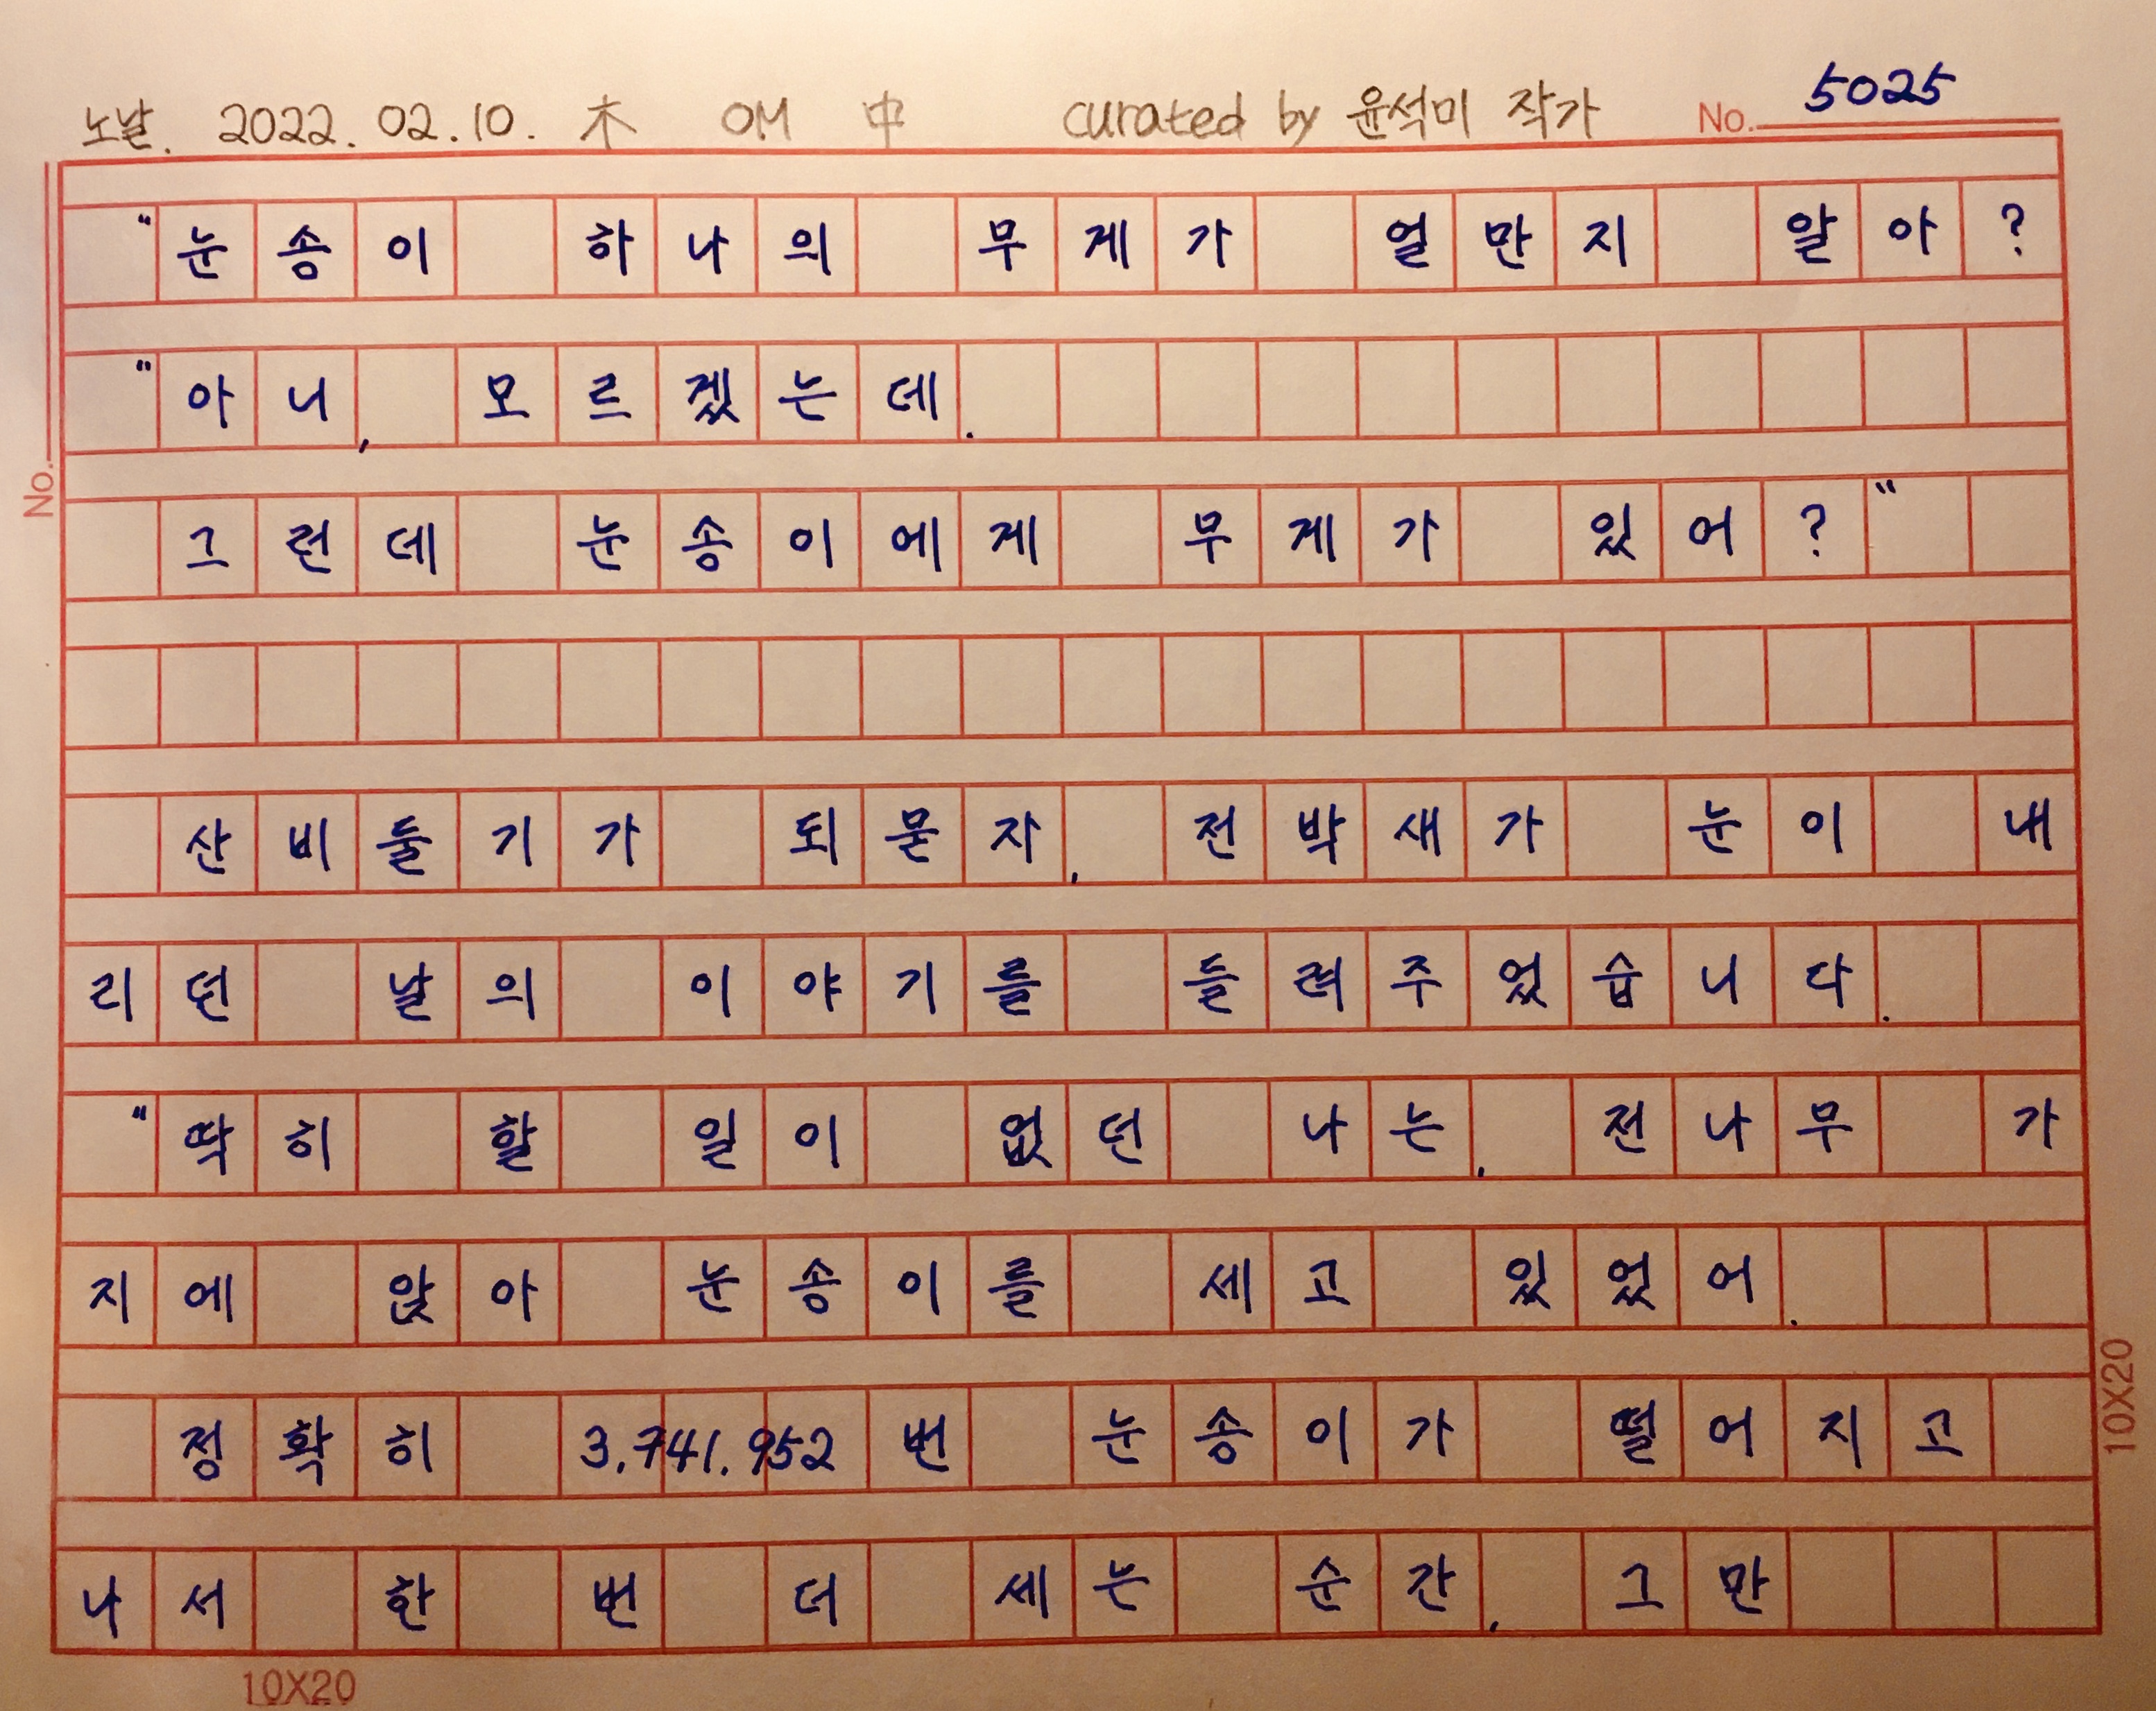 노날. 2022. 02. 10. 木 OM 中 curated by 윤석미 작가 No. 5025
"눈송이 하나의 무게가 얼만지 알아?
"아니, 모르겠는데.
그런데 눈송이에게 무게가 있어?"
산비둘기가 되묻자, 전박새가 눈이 내
리던 날의 이야기를 들려주었습니다.
"딱히 할 일이 없던 나는, 전나무 가
지에 앉아 눈송이를 세고 있었어.
정확히 3.741.952 번 눈송이가 떨어지고
나서 한 번 더 세는 순간, 그만
No.
10X20
10X20